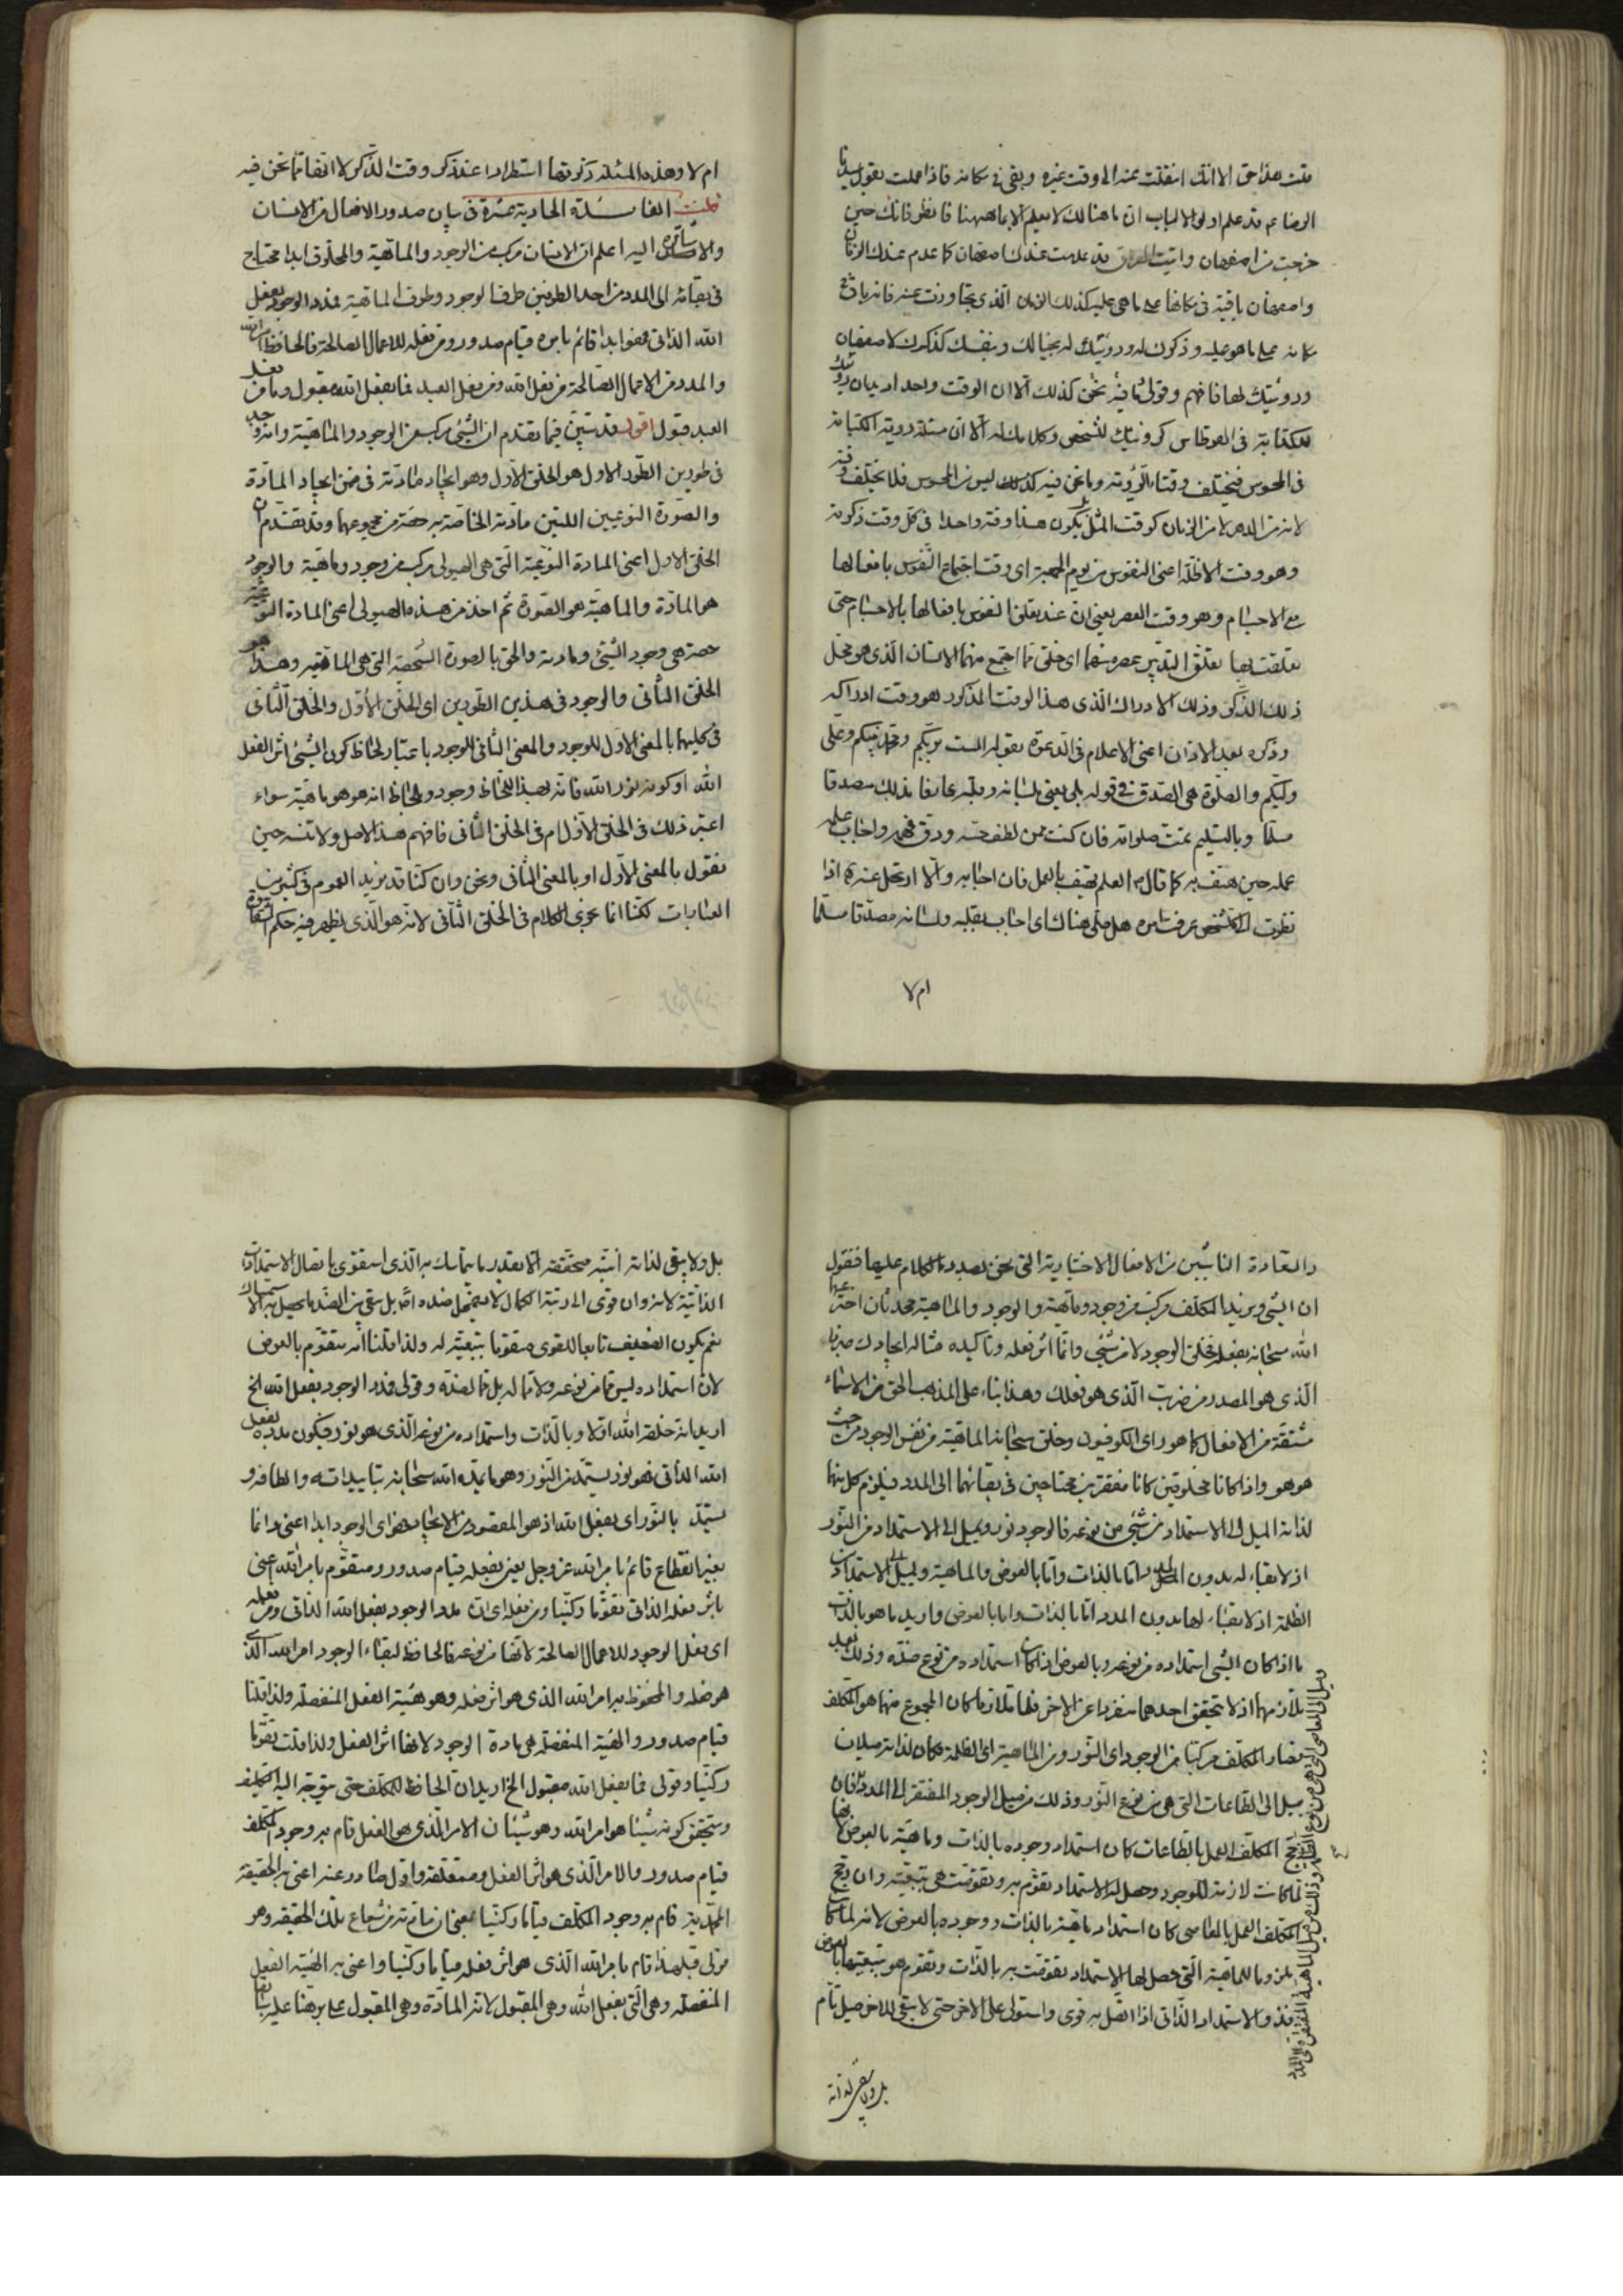 قلت هذا حق الا انك انتقلت عنه الى وقت غيره وبقى فى مكانه فاذا عملت بقول سيدنا
الرضا ع قد علم اولوا الالباب ان ما هنالك لا يعلم الا بما هيهنا فانظر فانك حين
خرجت من اصفهان واتيت قد عدمت عندك اصفهان كما عدم عندك الزمان
واصفهان باقية فى مكانها على ما هى عليه كذلك الزمان الذى تجاوزت عنه فانه باق فى
مكانه على ما هو عليه وذكرك له ورؤيتك له بخيالك وبنفسك كذكرك لاصفهان
ورؤيتك لها فافهم وقولى ما فيه نحن كذلك الا ان الوقت واحد اريد ان رؤيتك
للكتابة فى القرطاس كرؤيتك للشخص وكلامك له الا ان مسئلة رؤية الكتابة
فى المحسوس فيختلف وقتا الرؤية وما نحن فيه كذلك ليس من المحسوس فلا يختلف وقته
لانه من الدهر لا من الزمان كوقت المثل بل يكون هذا وقته واحدا فى كل وقت ذكرته
وهو وقت الاظلة اعنى النفوس من يوم الجمعة اى وقت اجتماع النفوس بافعالها
مع الاجسام وهو وقت العصر يعنى ان عند تعلق النفوس بافعالها بالاجسام حتى
تعلقت بها تعلق التدبير عصر منهما اى خلق مما اجتمع منهما الانسان الذى هو محل
ذلك الذكر وذلك الادراك الذى هذا الوقت المذكور هو وقت ادراكه
وذكره بعد الاذان اعنى الاعلام فى الدعوة بقوله الست بربكم ومحمد نبيكم وعلى
وليكم والصلوة هى الصدق فى قوله بلى يعنى بلسانه وقلبه عارفا بذلك مصدقا
مسلما وبالتسليم تمت صلواته فان كنت ممن لطف حسه ودق فهمه واجاب علمه
عمله حين هتف به كما قال ع العلم يهتف بالعمل فان اجابه والا ارتحل عنه فاذا
نظرت الى الشخص عرفت امره هل صلى هناك اى اجاب بقلبه ولسانه مصدقا مسلما
ام لا
ام لا وهذه المسئلة ذكرتها استطرادا عند ذكر وقت الذكر لا انها مما نحن فيه
قلت الفائدة الحادية عشرة فى بيان صدور الافعال من الانسان
والاشارة اليه اعلم ان الانسان مركب من الوجود والماهية والمخلوق ابدا محتاج
فى بقائه الى المدد من احد الطرفين طرف الوجود وطرف الماهية فمدد الوجود بفعل
الله الذاتى فهو ابدا قائم بامره قيام صدور ومن فعله للاعمال الصالحة فالحافظ امر الله
والمدد من الاعمال الصالحة من فعل الله ومن فعل العبد فما بفعل الله مقبول وما من فعل
العبد قبول اقول قد تبين فيما تقدم ان الشئ مركب من الوجود والماهية وانه وجد
فى طورين الطور الاول هو الخلق الاول وهو ايجاد مادته فى ضمن ايجاد المادة
والصورة النوعيين اللتين مادته الخاصة به حصة من مجموعهما وقد تقدم ان
الخلق الاول اعنى المادة النوعية التى هى الهيولى مركب من وجود وماهية والوجود
هو المادة والماهية هو الصورة ثم اخذ من هذه الهيولى اعنى المادة النوعية
حصة هى وجود الشئ ومادته والحق بها الصورة الشخصية التى هى الماهية وهذا هو
الخلق الثانى والوجود فى هذين الطورين اى الخلق الاول والخلق الثانى
فى كليهما بالمعنى الاول للوجود والمعنى الثانى الوجود باعتبار لحاظ كون الشئ اثر الفعل
الله او كونه نور الله فانه بهذا اللحاظ وجود وبلحاظ انه هو هو ماهية سواء
اعتبر ذلك فى الخلق الاول ام فى الخلق الثانى فافهم هذا الاصل ولا تنسه حين
نقول بالمعنى الاول او بالمعنى الثانى ونحن وان كنا قد نريد العموم فى كثير من
العبارات لكنا انما نجرى الكلام فى الخلق الثانى لانه هو الذى يظهر فيه حكم الشقاوة
والسعادة الناشئين من الافعال الاختيارية التى نحن بصدد الكلام عليها فنقول
ان الشئ ونريد المكلف مركب من وجود وماهية والوجود والماهية محدثان اخترعهما
الله سبحانه بفعله فخلق الوجود لا من شئ وانما اثر فعله وتاكيده مثاله ايجادك ضربا
الذى هو المصدر من ضربت الذى هو فعلك وهذا بناء على المذهب الحق من الاسماء
مشتقة من الافعال كما هو راى الكوفيون وخلق سبحانه الماهية من نفس الوجود من حيث
هو هو واذا كانا مخلوقين كانا مفتقرين محتاجين فى بقائهما الى المدد فيلزم كل منهما
لذاته الميل الى الاستمداد من شئ من نوعه فالوجود نور ويميل الى الاستمداد من النور
اذ لا بقاء له بدون المدد اما بالذات واما بالعرض والماهية وتميل الى الاستمداد من
الظلمة اذ لا بقاء لها بدون المدد اما بالذات واما بالعرض واريد بما هو بالذات
ما اذا كان الشئ استمداده من نوعه وبالعرض اذا كان استمداده من نوع ضده وذلك بعد
تلازمهما اذ لا يتحقق احدهما منفردا عن الاخر فلما تلازما كان المجموع منهما هو المكلف
فصار المكلف مركبا من الوجود اى النور ومن الماهية اى الظلمة فكان لذاته ميلان
ميل الى الطاعات التى هى من نوع النور وذلك من ميل الوجود المفتقر الى المدد فان
رجح المكلف العمل بالطاعات كان استمداد وجوده بالذات وماهيته بالعرض لانها
لما كانت لازمة للوجود وحصل له الاستمداد تقوم به وتقومت هى بتبعيته وان رجح
المكلف العمل بالمعاصى كان استمداد ماهيته بالذات ووجوده بالعرض لانه لما كان
ملزوما للماهية التى حصل لها الاستمداد تقومت به بالذات وتقوم هو بتبعيتها بالعرض
فذو الاستمداد الذاتى اذا اتصل به قوى واستولى على الاخر حتى لا يبقى للاخر ميل تام
وميل الى المعاصى التى هى من نوع الظلمة وذلك من ميل الماهية المفتقرة الى المدد
بل ولا يبقى لذاته
بل ولا يبقى لذاته انية متحققة الا بقدر ما يتماسك به الذى استقوى باتصال الاستمدادات
الذاتية لانه وان قوى الى رتبة الكمال لا يضمحل ضده بل يبقى من الضد ما يحصل به الاستمساك
نعم يكون الضعيف تابعا للقوى متقوما بتبعيته له ولذا قلنا انه متقوم بالعرض
لان استمداده ليس مما من نوعه ولا مما له بل مما لضده وقولى فمدد الوجود بفعل الله الخ
اريد انه خلقه الله اولا وبالذات واستمداده من نوعه الذى هو نور فيكون مدده بفعل
الله الذاتى فهو نور يستمد من النور وهو ما يمده الله سبحانه بتاييداته والطافه و
يستمد بالنور اى بفعل الله اذ هو المقصود من الايجاد فهو اى الوجود ابدا اعنى دائما
بغير انقطاع قائم بامر الله عز وجل يعنى بفعله قيام صدور ومتقوم بامر الله يعنى
باثر فعله الذاتى تقوما ركنيا ومن فعله اى ان مدد الوجود بفعل الله الذاتى ومن فعله
اى فعل الوجود للاعمال الصالحة لانها من نوعه فالحافظ لبقاء الوجود امر الله الذى
هو فعله والمحفوظ به امر الله الذى هو اثر فعله وهو هيئة الفعل المنفصلة ولذا قلنا
قيام صدور والهيئة المنفصلة هى مادة الوجود لانها اثر الفعل ولذا قلت تقوما
ركنيا وقولى فما بفعل الله مقبول الخ اريد ان الحافظ للمكلف حتى يتوجه اليه التكليف
ويتحقق كونه شيئا هو امر الله وهو شيئان الامر الذى هو الفعل قام به وجود المكلف
قيام صدور والامر الذى هو اثر الفعل ومتعلقه واول صادر عنه اعنى به الحقيقة
المحمدية قام به وجود المكلف قياما ركنيا بمعنى ان مادته من شعاع تلك الحقيقة وهو
قولى قبل هذا قام بامر الله الذى هو اثر فعله قياما ركنيا واعنى به الهيئة الفعل
المنفصلة وهى التى بفعل الله وهى المقبول لانه المادة وهى المقبول على ما برهنا عليه سابقا